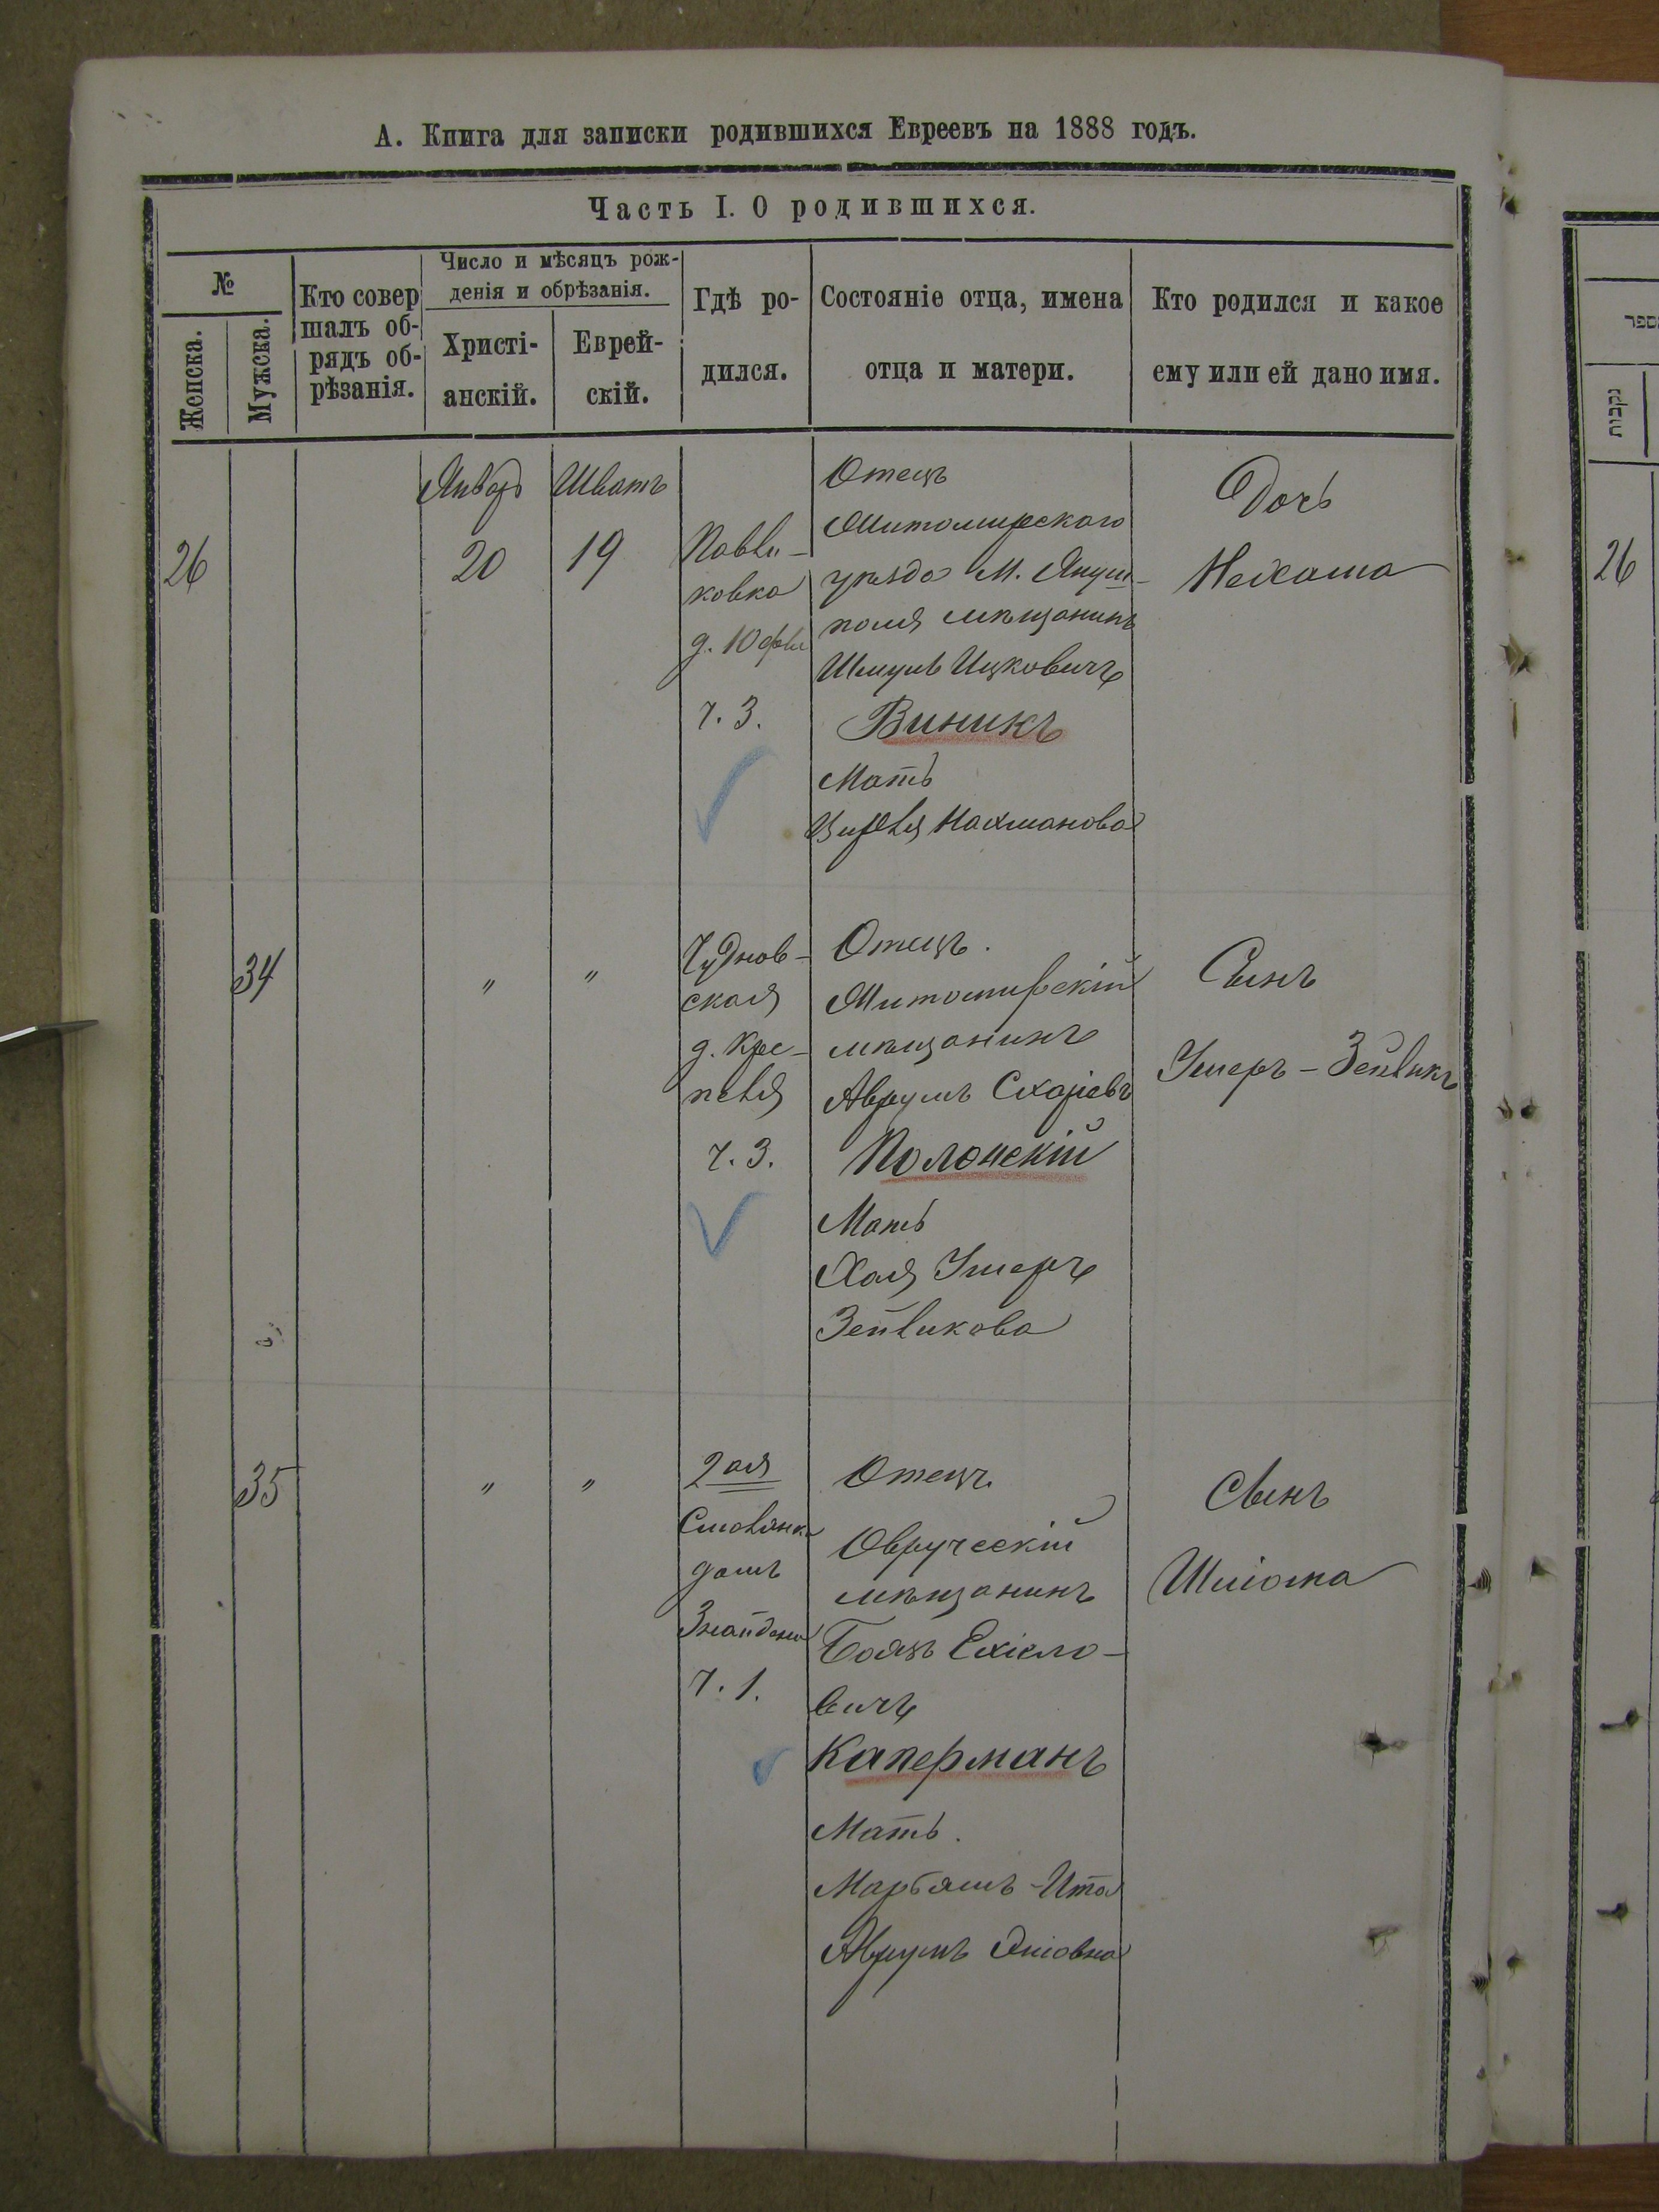 А. Книга для записки родившихся Евреевъ на 1888 годъ.
Часть I. О родившихся.
№
Женска.
Мужска.
Кто совер
шалъ об-
рядъ об-
рѣзанія.
Число и мѣсяцъ рож-
денія и обрѣзанія.
Христі-
анскій.
Еврей-
скій.
Гдѣ ро-
дился.
Состояніе отца, имена
отца и матери.
Кто родился и какое
ему или ей дано имя.
26
Январ
20
Шватъ
19
Павли-
ковка
ч. 3.
Отецъ
Житомирскаго
уѣзда М. Януш-
поля мѣщанинъ
Шмуль Ицковичъ
Виникъ
Мать
Нахманова
Дочь
Нехама
34
"
"
Чуднов-
ская
д. Кре-
пеля
ч. 3.
Отецъ.
Житомирскій
мѣщанинъ
Аврумъ Схаріевъ
Полонскій
Мать
Хая Ушеръ
Зейликова
Сынъ
Ушеръ-Зейликъ
35
"
"
2ая
домъ
ч. 1.
Отецъ
Овручскій
мѣщанинъ
Ехіело-
вичъ
Каперманъ
Мать.
Марьямъ-Ита
Аврумъ
Сынъ
Шліома
26
נקבות